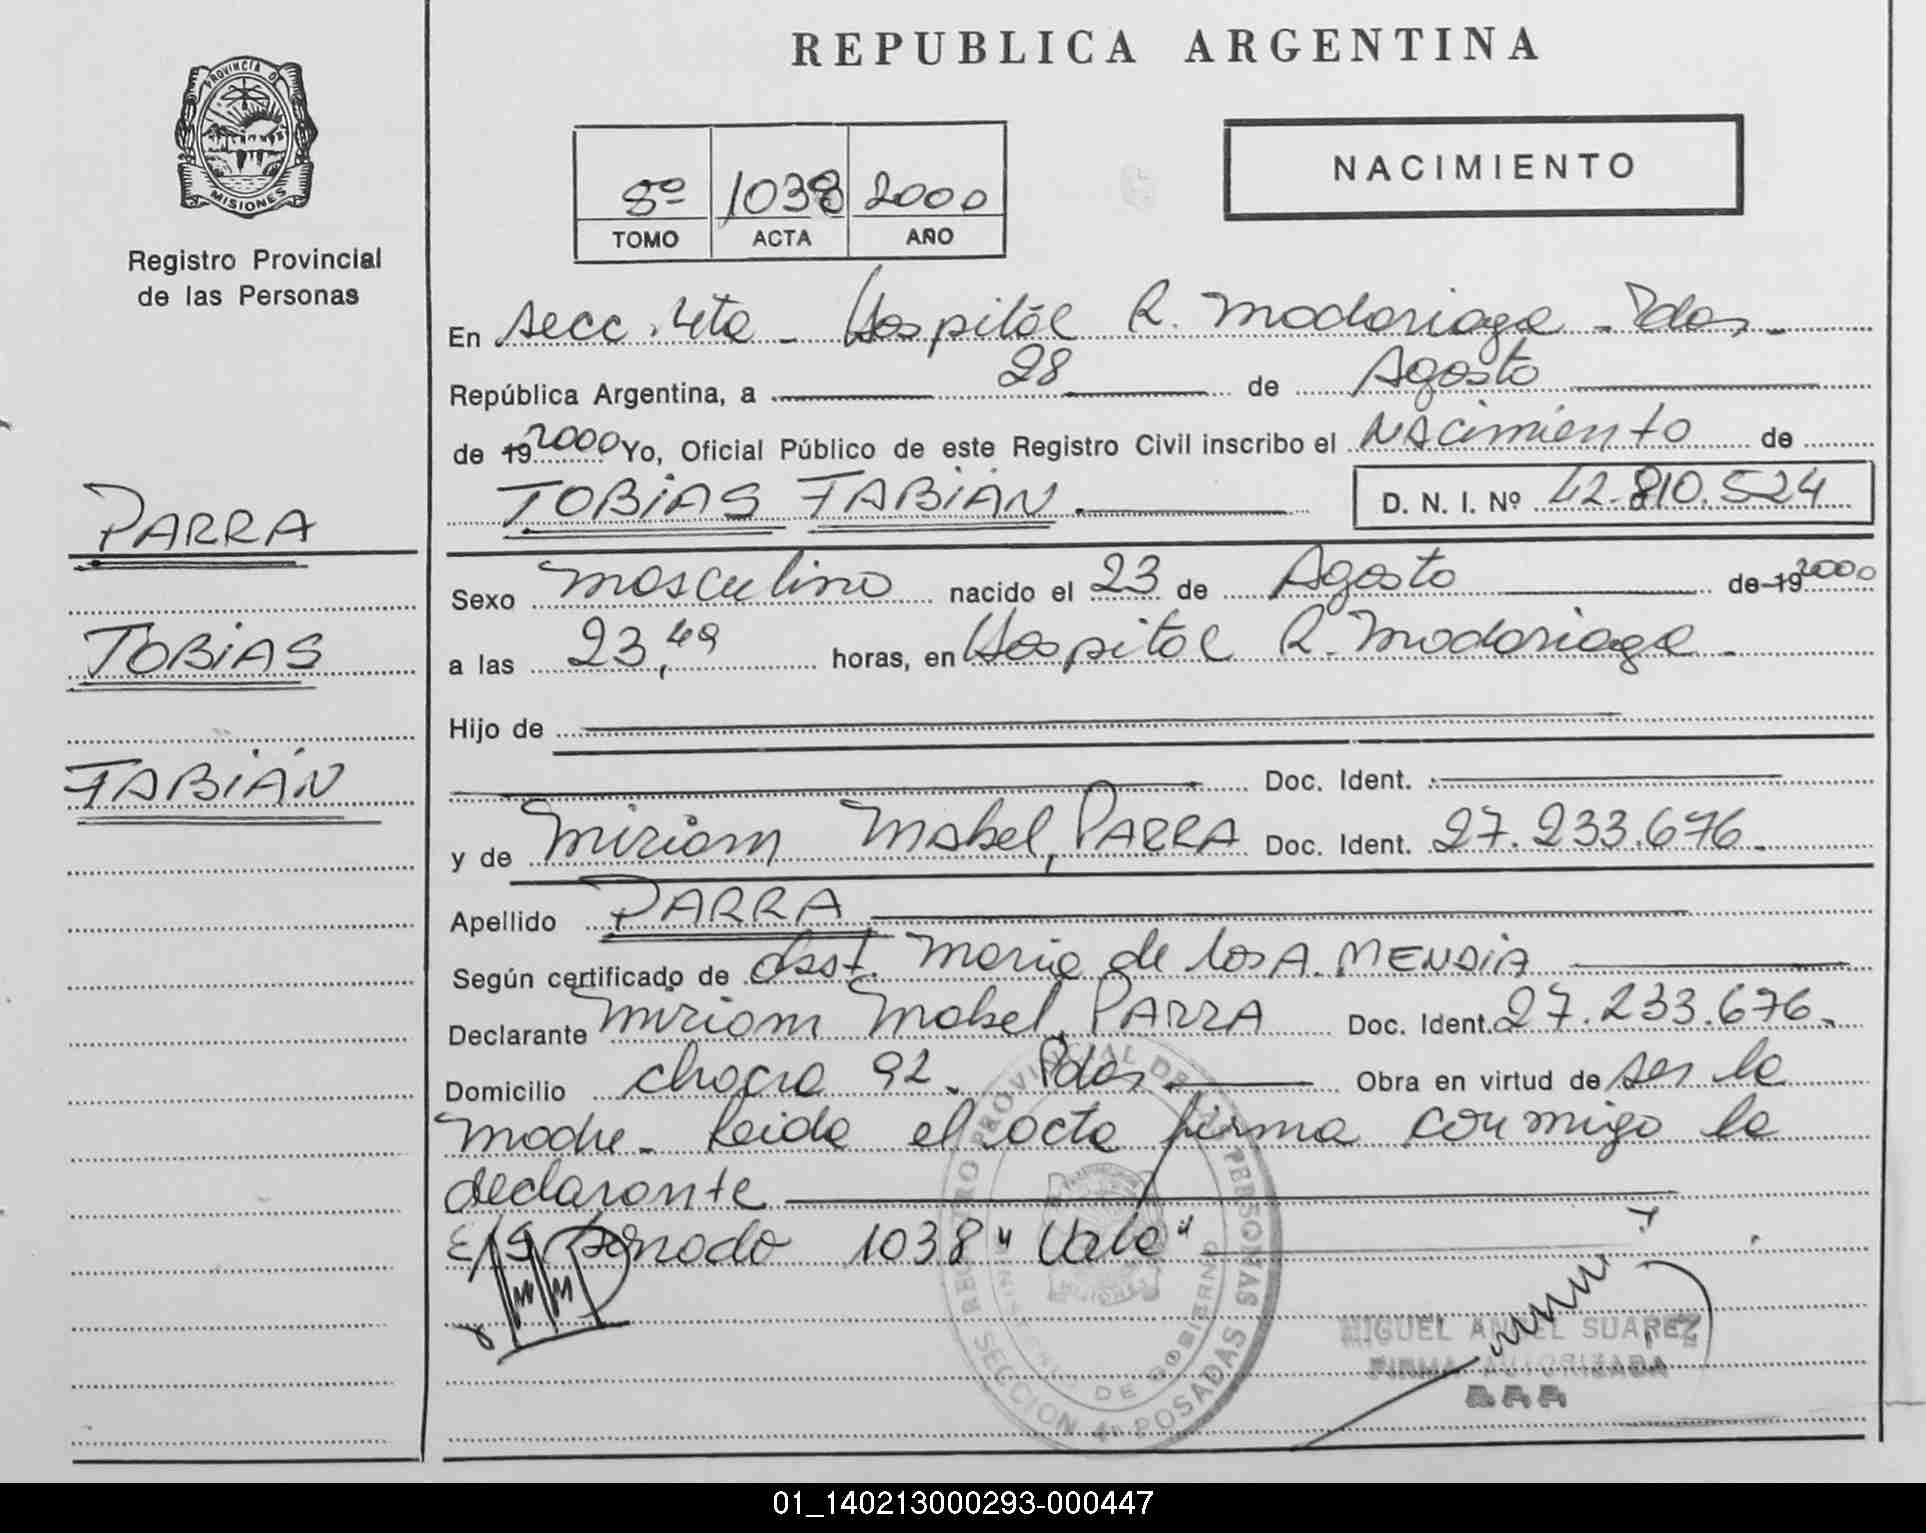 REPUBLICA ARGENTINA
PROVINCIA DE
MISIONES
Registro Provincial
de las Personas
8º 1038 2000
TOMO ACTA AÑO
NACIMIENTO
En Secc. 4ta - Hospital R. Madariaga - Pdas -
República Argentina, a 28 de Agosto
de 19 2000 Yo, Oficial Público de este Registro Civil inscribo el Nacimiento de
TOBIAS FABIÁN. D. N. I. Nº 42.810.524
PARRA
TOBIAS
FABIÁN
Sexo masculino nacido el 23 de Agosto de 19 2000
a las 23,49 horas, en Hospital R. Madariaga -
Hijo de
Doc. Ident.
y de Miriam Mabel, PARRA Doc. Ident. 27.233.676.
Apellido PARRA
Según certificado de Obst. Maria de los A. MENDIA
Declarante Miriam Mabel, PARRA Doc. Ident. 27.233.676.
Domicilio chacra 92. Pdas Obra en virtud de ser la
madre - Leida el acta firma conmigo la
declarante
E/S 1038 " Vale"
REGISTRO PROVINCIAL DE LAS PERSONAS
DE GOBIERNO
SECCION 4ª POSADAS
MIGUEL ANGEL SUAREZ
FIRMA AUTORIZADA
01_140213000293-000447